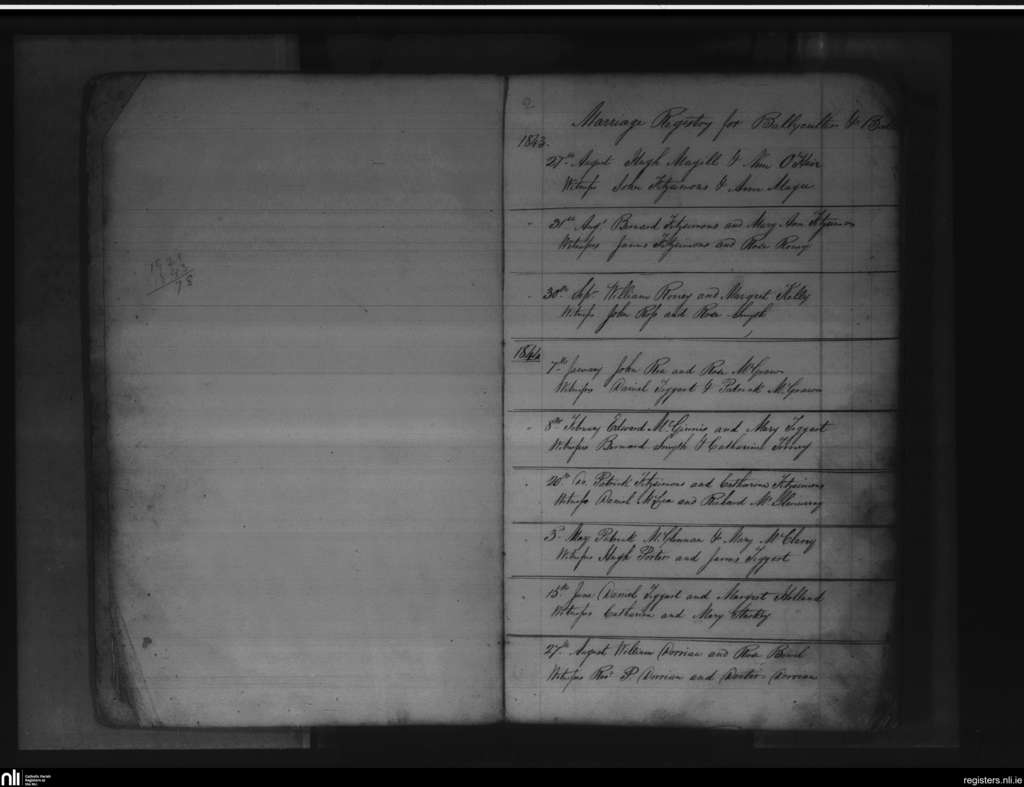 2
Marriage Registry for Ballyculter &
1843.
27th August Hugh Magill & Ann O'Hare
Witness John Fitzsimons & Ann Magee
" 31st Augt Bernard Fitzsimons and Mary Ann Fitzsimons
Witnesses James Fitzsimons and Rose Roney
" 30th Sepr William Roney and Margret Kelly
Witness John Ross and Rose Smyth
1844
7th January John Rea and Rose McGrawn
Witness Daniel Teggart & Patrick McGrawn
" 8th Febuary Edward McGinnis and Mary Teggart
Witness Bernard Smyth & Catharine Toney
" 20th Do. Patrick Fitzsimons and Catharine Fitzsimons
Witness Daniel McCrea and Richard
" 3d May Patrick McClennan & Mary McClany
Witness Hugh Porter and James Teggart
" 15th June Daniel Teggart and Margret Holland
Witnesses Catharine and Mary Starkey
27th August William Dorrian and Rose
Witness Revd P Dorrian and Doctor Dorrian
nli
Catholic Parish
Registers at
the NLI
registers.nli.ie